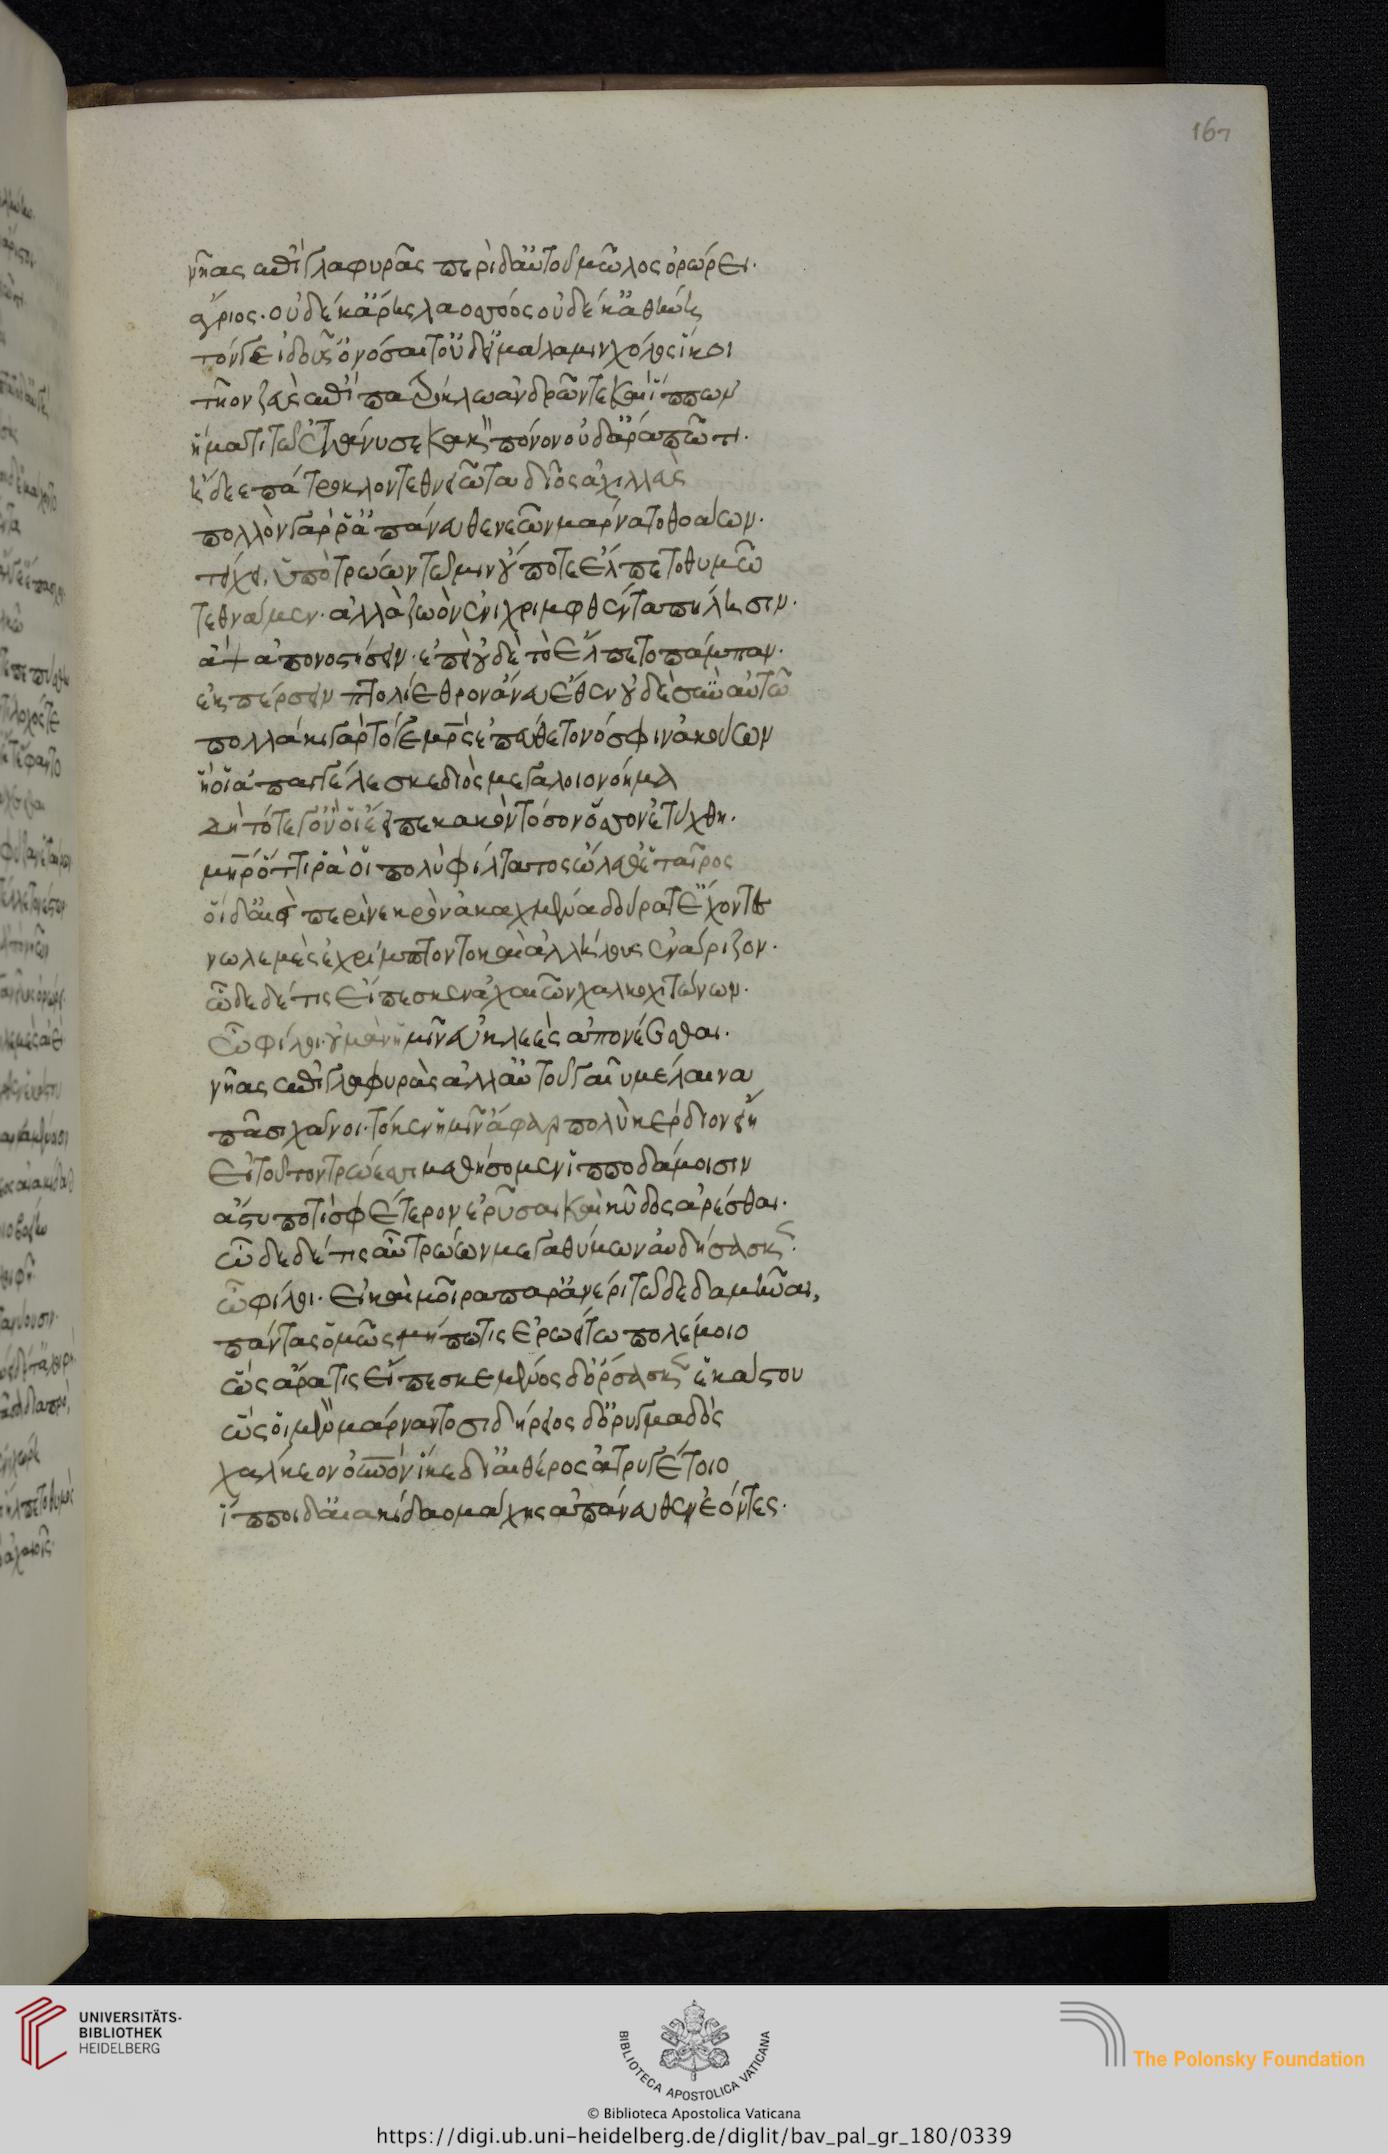 167
νῆας ἐπὶ γλαφυρᾶς περὶ δ' αὐτοῦ μῶλος ὀρώρει.
ἄγριος. οὐδέ κ' ἄρης λαοσσόος οὐδέ κ' ἀθήνη
τόνγε ἰδοῦσ' ὀνόσαιτ' οὐδ' εἰ μάλα μιν χόλος ἵκοι
τοῖον ζεὺς ἐπὶ πατρόκλω ἀνδρῶν τε καὶ ἵππων
ἤματι τῶ ἐτάνυσε κακὸν πόνον οὐδ' ἄρα πώ τι.
ἤδεε πάτροκλον τεθνεῶτα δῖος ἀχιλλεὺς
πολλὸν γάρ ῥ' ἀπάνευθε νεῶν μάρναντο θοάων.
τείχει ὑπὸ τρώων τῶ μιν οὔποτε ἔλπετο θυμῶ
τεθνάμεν. ἀλλὰ ζωὸν ἐνιχριμφθέντα πύλησιν.
ἂψ ἀπονοστήσειν. ἐπεὶ οὐδὲ τὸ ἔλπετο πάμπαν.
ἐκπέρσειν πτολίεθρον ἄνευ ἕθεν οὐδὲ σὺν αὐτῶ
πολλάκι γὰρ τόγε μητρὸς ἐπεύθετο νόσφιν ἀκούων
ἥ οἱ ἀπαγγέλεσκε διὸς μεγάλοιο νόημα
δὴ τότε γ' οὔ οἱ ἔειπε κακὸν τόσον ὅσσον ἐτύχθη.
μήτηρ ὅττι ῥά οἱ πολὺ φίλτατος ὤλεθ' ἑταῖρος
οἱ δ' αἰεὶ περὶ νεκρὸν ἀκαχμένα δούρατ' ἔχοντες
νωλεμὲς ἐχρίμπτοντο καὶ ἀλλήλους ἐνάριζον.
ὧδε δέ τις εἴπεσκεν ἀχαιῶν χαλκοχιτώνων.
ὦ φίλοι οὐ μὰν ἧμιν ἐϋκλεὲς ἀπονέεσθαι.
νῆας ἐπὶ γλαφυρὰς ἀλλ' αὐτοῦ γαῖα μέλαινα
πᾶσι χάνοι. τό κεν ἧμιν ἄφαρ πολὺ κέρδιον εἴη
εἰ τοῦτον τρώεσσι μεθήσομεν ἱπποδάμοισιν
ἄστυ ποτὶ σφέτερον ἐρῦσαι καὶ κῦδος ἀρέσθαι.
ὧδε δέ τις αὖ τρώων μεγαθύμων αὐδήσασκεν.
ὦ φίλοι. εἰ καὶ μοῖρα παρ' ἀνέρι τῶδε δαμῆναι,
πάντας ὁμῶς μήπω τις ἐρωείτω πολέμοιο
ὣς ἄρα τις εἴπεσκε μένος δ' ὄρσασκεν ἑκάστου
ὣς οἱ μὲν μάρναντο σιδήρειος δ' ὀρυμαγδὸς
χάλκεον οὐρανὸν ἷκε δι' αἰθέρος ἀτρυγέτοιο
ἵπποι δ' αἰακίδαο μάχης ἀπάνευθεν ἐόντες.
UNIVERSITÄTS-
BIBLIOTHEK
HEIDELBERG
BIBLIOTECA APOSTOLICA VATICANA
The Polonsky Foundation
© Biblioteca Apostolica Vaticana
https://digi.ub.uni-heidelberg.de/diglit/bav_pal_gr_180/0339